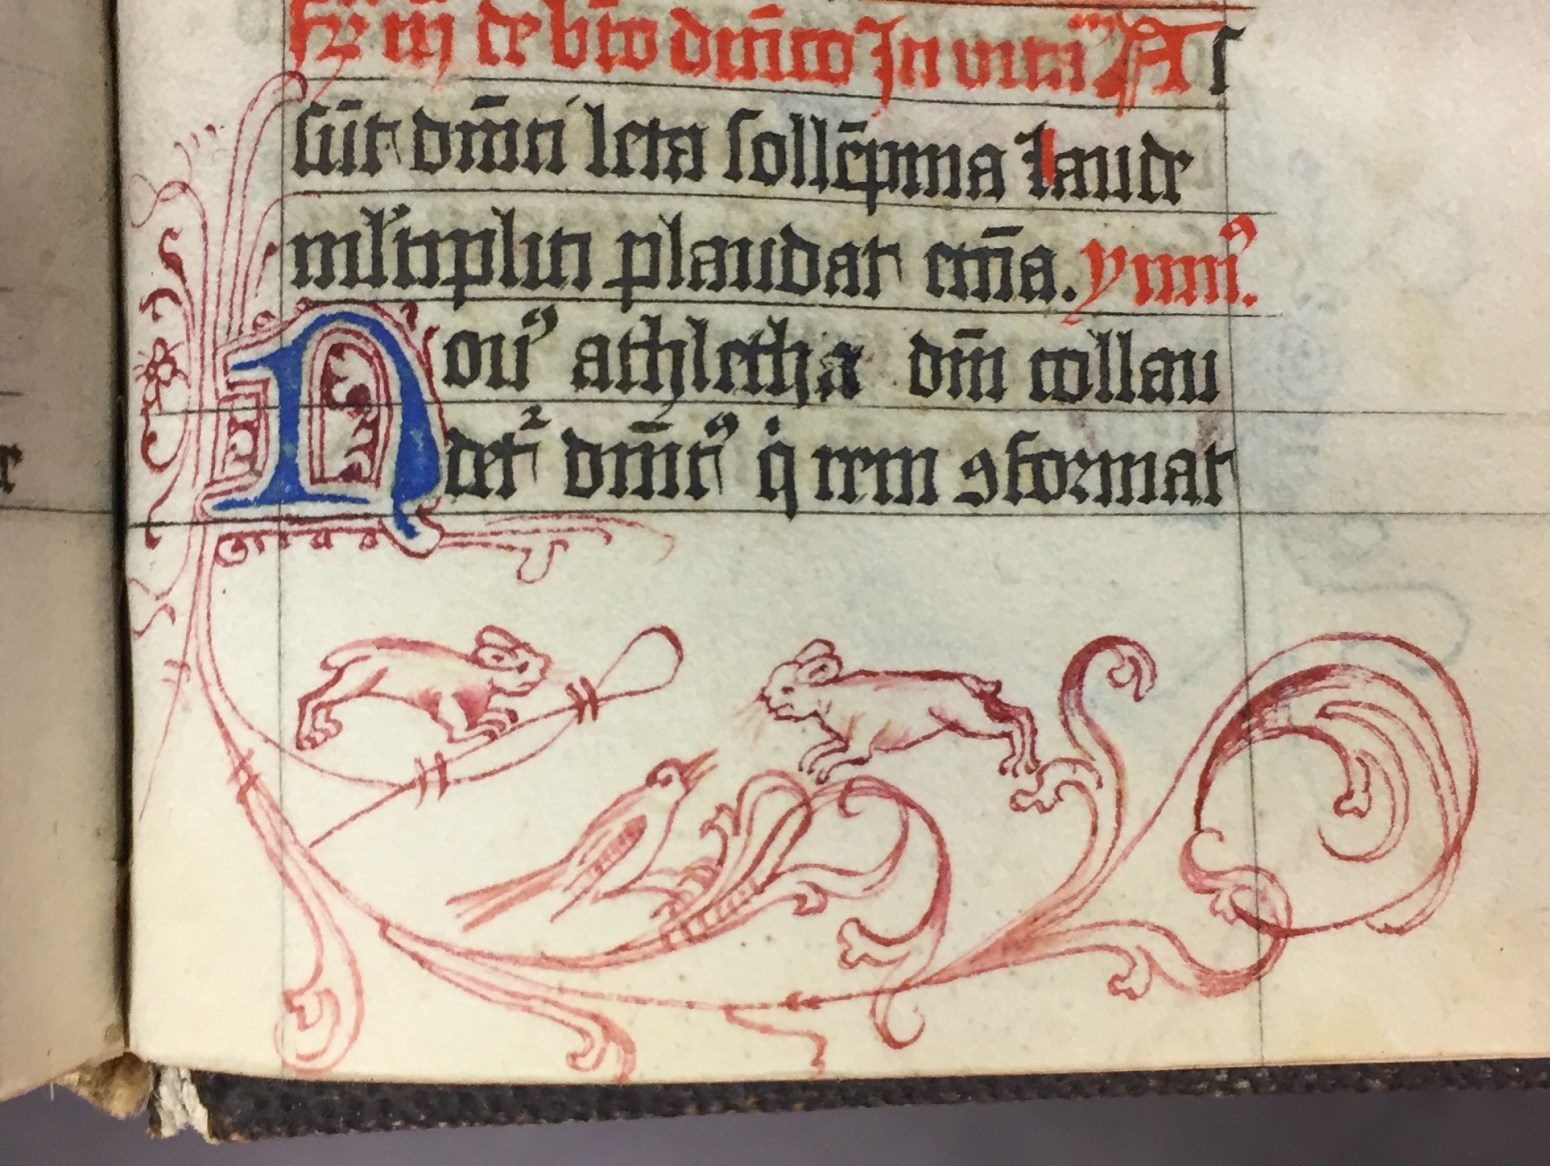 de bt̄o dn̄ico In vita A s
sūt dn̄ici leta sollēpnia laude
ml'tiplici plaudat ecc̄ia. ymn9.
Nou9 athletha dn̄i collau
det2 dn̄ic9 q̇ rem ɔformat